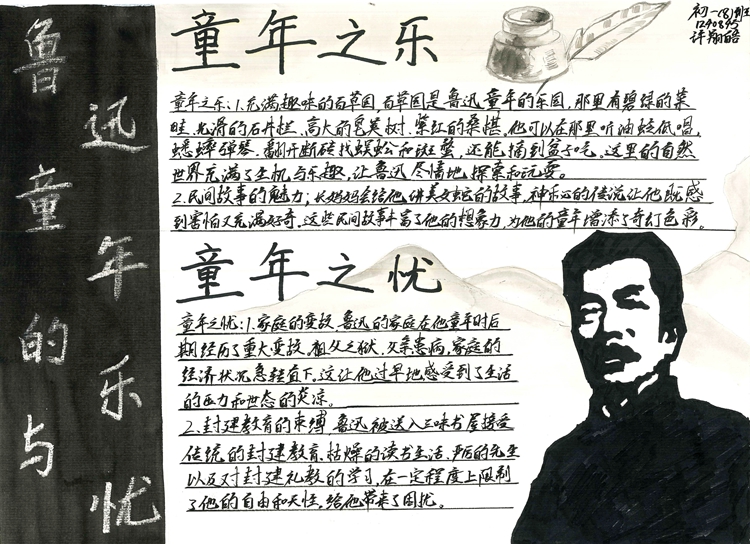 鲁迅童年
的与乐忧
初一(8)班
1240845
许翔皓
童年之乐
童年之乐:1.充满趣味的百草园,百草园是鲁迅童年的乐园,那里有碧绿的菜
畦、光滑的石井栏、高大的皂荚树、紫红的桑椹,他可以在那里听油蛉低唱,
蟋蟀弹琴,翻开断砖找蜈蚣和斑蝥,还能摘到复盆子吃。这里的自然
世界充满了生机与乐趣,让鲁迅尽情地探索和玩耍。
2.民间故事的魅力;长妈妈会给他讲美女蛇的故事,神秘的传说让他既感
到害怕又充满好奇。这些民间故事丰富了他的想象力,为他的童年增添了奇幻色彩。
童年之忧
童年之忧:1.家庭的变故,鲁迅的家庭在他童年时后
期经历了重大变故,祖父入狱,父亲患病,家庭的
经济状况急转直下,这让他过早地感受到了生活
的压力和世态的炎凉。
2.封建教育的束缚,鲁迅被送入三味书屋接受
传统的封建教育,枯燥的读书生活,严厉的先生
以及对封建礼教的学习,在一定程度上限制
了他的自由和天性,给他带来了困扰。